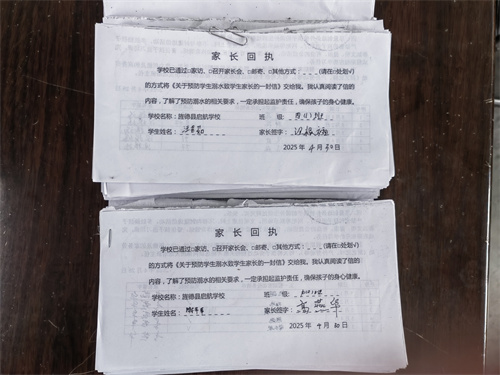 家 长 回 执
学校已通过□家访、□召开家长会、□邮寄、□其他方式:_ _ _(请在□处划√)
的方式将《关于预防学生溺水致学生家长的一封信》交给我。我认真阅读了信的
内容,了解了预防溺水的相关要求,一定承担起监护责任,确保孩子的身心健康。
学校名称:旌德县启航学校 班 级:
学生姓名: 家长签字:
2025年 4 月 30日
家 长 回 执
学校已通过□家访、□召开家长会、□邮寄、□其他方式:_ _ _(请在□处划√)
的方式将《关于预防学生溺水致学生家长的一封信》交给我。我认真阅读了信的
内容,了解了预防溺水的相关要求,一定承担起监护责任,确保孩子的身心健康。
学校名称:旌德县启航学校 班 级:
学生姓名: 家长签字:
2025年 4 月 30 日